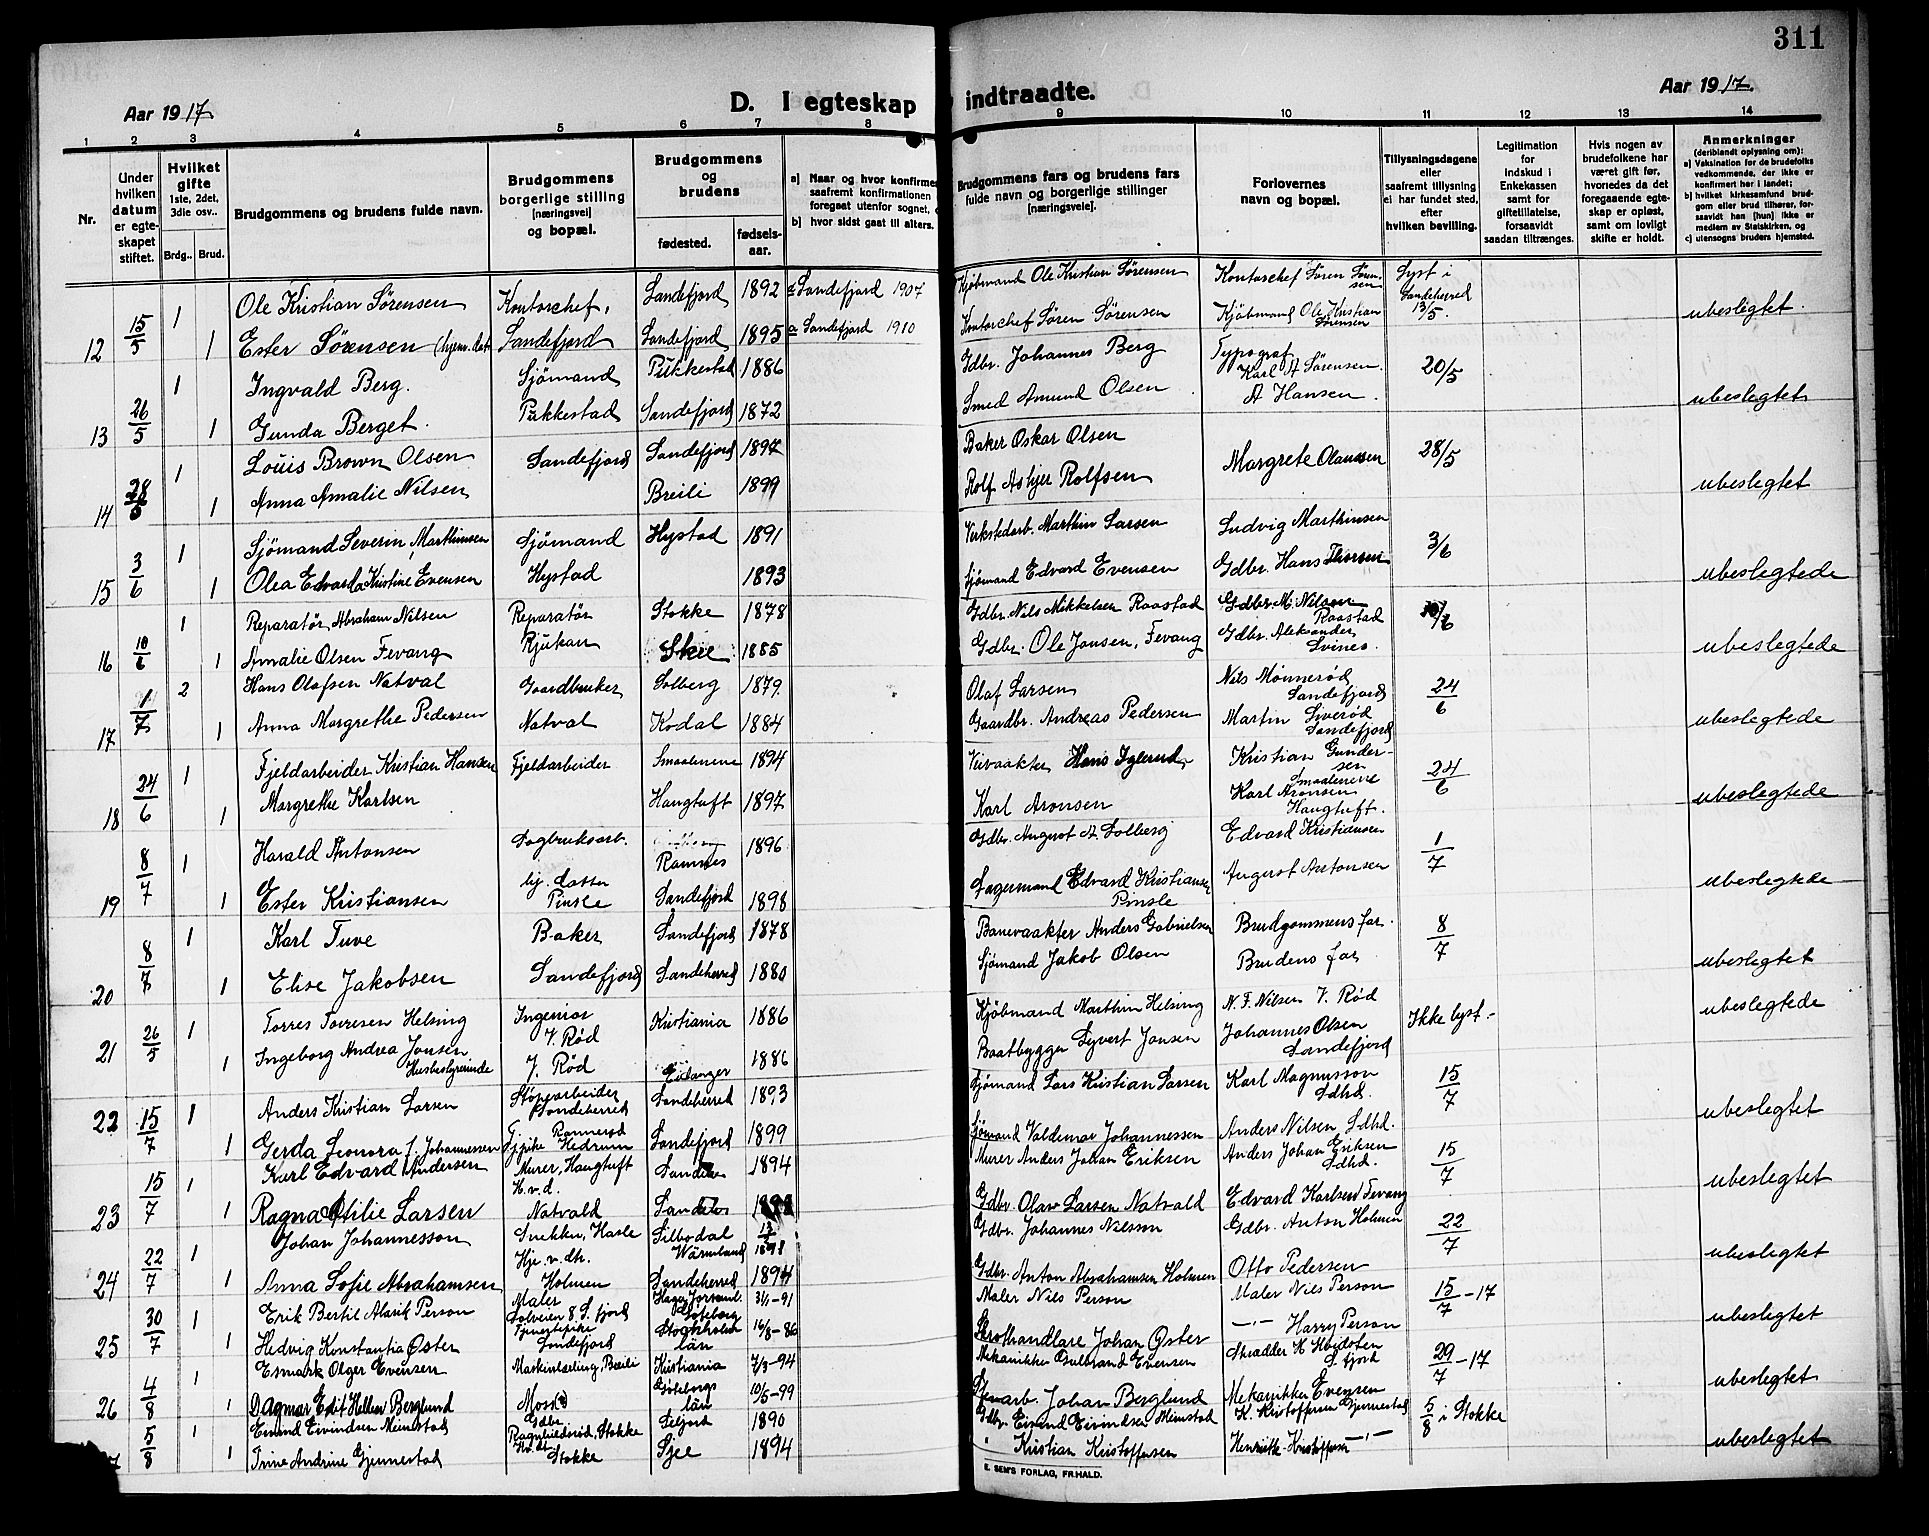 311
Aar 1917
D. I egteskap indtraadte.
Aar 1917.
1 2 3 4 5 6 7 8 9 10 11 12 13 14
Nr.
Under hvilken datum er egteskapet stiftet.
Hvilket gifte 1ste, 2det, 3die osv..
Brdg.. Brud.
Brudgommens og brudens fulde navn.
Brudgommens borgerlige stilling [næringsvei] og bopæl.
Brudgommens og brudens
fødested.
fødselsaar.
a) Naar og hvor konfirmer
saafremt konfirmationen
foregaat utenfor sognet,
b) hvor sidst gaat til alters.
Brudgommens fars og brudens fars fulde navn og borgerlige stillinger [næringsveie].
Forlovernes navn og bopæl.
Tillysningsdagene eller saafremt tillysning ei har fundet sted, efter hvilken bevilling.
Legitimation for indskud i Enkekassen samt for giftetillatelse, forsaavidt saadan tiltrænges.
Hvis nogen av brudefolkene har været gift før, hvorledes da det foregaaende egteskap er opløst, samt om lovligt skifte er holdt.
Anmerkninger
(deriblandt oplysning om):
a) Vaksination for de brudefolks vedkommende, der ikke er konfirmert her i landet;
b) hvilket kirkesamfund brudgom eller brud tilhører, forsaavidt han [hun] ikke er medlem av Statskirken, og
c) utensogns bruders hjemsted.
12 15/5 1 Ole Kristian Sørensen Kontorchef, Sandefjord 1892 a Sandefjord 1907 Kjøbmand Ole Kristian Sørensen Kontorchef Søren Sørensen Lyst i Sandeherred 13/5. ubeslegtet.
1 Ester Sørensen (hjem. dat Sandefjord Sandefjord 1895 a Sandefjord 1910 Kontorchef Søren Sørensen Kjøbmand Ole Kristian Sørensen
13 26/5 1 Ingvald Berg. Sjømand Pukkestad 1886 Gdbr. Johannes Berg Typograf Karl A Sørensen. 20/5 ubeslegtet
1 Gunda Berget. Pukkestad Sandefjord 1872 Smed Amund Olsen A Hansen.
14 28/5 1 Louis Brown Olsen Sandefjord Sandefjord 1897 Baker Oskar Olsen Margrete Olaussen 28/5 ubeslegtet
1 Anna Amalie Nilsen Breili 1899 Rolf Asbjer Rolfsen
15 3/6 1 Sjømand Severin Marthinsen Sjømand Hystad 1891 Verkstedarb. Marthin Larsen Ludvig Marthinsen 3/6 ubeslegtede
1 Olea Edvarda Kristine Evensen Hystad 1893 Sjømand Edvard Evensen Gdbr. Hans Thorsen
16 10/6 1 Reparatør Abraham Nilsen Reparatør Stokke 1878 Gdbr. Nils Mikkelsen Raastad Gdbr. M. Nilsen Raastad 10/6 ubeslegtede
1 Amalie Olsen Fevang Rjukan Skee 1885 Gdbr. Ole Jonsen, Fevang Gdbr. Aleksander Svines.
17 1/7 2 Hans Olafsen Natval Gaardbruker Solberg 1879 Olaf Larsen Nils Mønnerød Sandefjord 24/6 ubeslegtede
1 Anna Margrethe Pedersen Natval Kodal 1884 Gaardbr. Andreas Pedersen Martin Liverød Sandefjord
18 24/6 1 Fjeldarbeider Kristian Hansen Fjeldarbeider Smaalenene 1894 Veivaakter Hans Iglerud Kristian Gundersen Smaalenene 24/6 ubeslegtede
1 Margrethe Karlsen Haugtuft 1897 Karl Aronsen Karl Aronsen Haugtuft.
19 8/7 1 Harald Antonsen Sagbruksarb. Ramnes 1896 Gdbr. August A. Solberg Edvard Kristiansen 1/7 ubeslegtede
1 Ester Kristiansen hj. datter Pinsle Sandefjord 1898 Lagermand Edvard Kristiansen Pinsle August Antonsen
20 8/7 1 Karl Tuve Baker Sandefjord 1878 Banevaakter Anders Gabrielsen Brudgommens far. 8/7 ubeslegtet
1 Elise Jakobsen Sandefjord Sandeherred 1880 Sjømand Jakob Olsen Brudens far
21 26/5 1 Torres Torresen Helsing Ingeniør V. Rød Kristiania 1886 Kjøbmand Marthin Helsing N. F. Nilsen V. Rød Ikke lyst.- ubeslegtede
1 Ingeborg Andrea Jonsen Husbestyrerinde V. Rød Eidanger 1886 Baatbygger Syvert Jonsen Johannes Olsen Sandefjord
22 15/7 1 Anders Kristian Larsen Støperarbeider Sandeherred Sandeherred 1893 Sjømand Lars Kristian Larsen Karl Magnusson Sdhd. 15/7 ubeslegtet
1 Gerda Leonora J. Johannessen Rømmerød Hedrum Sandefjord 1899 Sjømand Valdemar Johannessen Anders Nilsen Sdhd.
23 15/7 1 Karl Edvard Andersen Murer, Haugtuft 1894 Murer Anders Johan Eriksen Anders Johan Eriksen Sdhd. 15/7 ubeslegtet
1 Ragna Otilie Larsen H.v.d. Natvald Gdbr. Olav Larsen Natvald Edvard Karlsen Fevang
24 22/7 1 Johan Johannesson Snekker, Hasle Silbodal Wärmland 1898 Gdbr. Johannes Nilsson Gdbr. Anton Holmen 22/7 ubeslegtet
1 Anna Sofie Abrahamsen Hje. v. dtr. Holmen Sandeherred 1894 Gdbr. Anton Abrahamsen Holmen Otto Pedersen
25 30/7 1 Erik Bertil Alarik Person Maler Solveien 8 S. fjord Göteborg 31/1-91 Maler Nils Person Maler Nils Person 15/7-17 ubeslegtet
1 Hedvig Konstantia Øster Tjenestepike Sandefjord Stockholm län 16/8-86 Skrothandlare Johan Øster -"- Harry Person
26 4/8 1 Esmark Olger Evensen Maskinlærling, Breili Kristiania 7/3-94 Mekanikker Gulbrand Evensen Skrædder K Kvidsten S. fjord 29/7-17 ubeslegtet
1 Dagmar Edit Hellen Berglund Moss Göteborgs län 10/5-99 Johan Berglund Mekanikker Evensen
5/8 1 Eivind Eivindsen Meinstad Gdbr. Ragnhildrød, Stokke Seljord 1890 Gdbr. Eivind Eivindsen Meinstad K. Kristoffersen Gjennestad 5/8 i Stokke ubeslegtet
1 Trine Andrine Gjennestad Stokke Sjee 1894 " Kristian Kristoffersen Henriette Kristoffersen -"-
E. SEM'S FORLAG, FR.HALD.